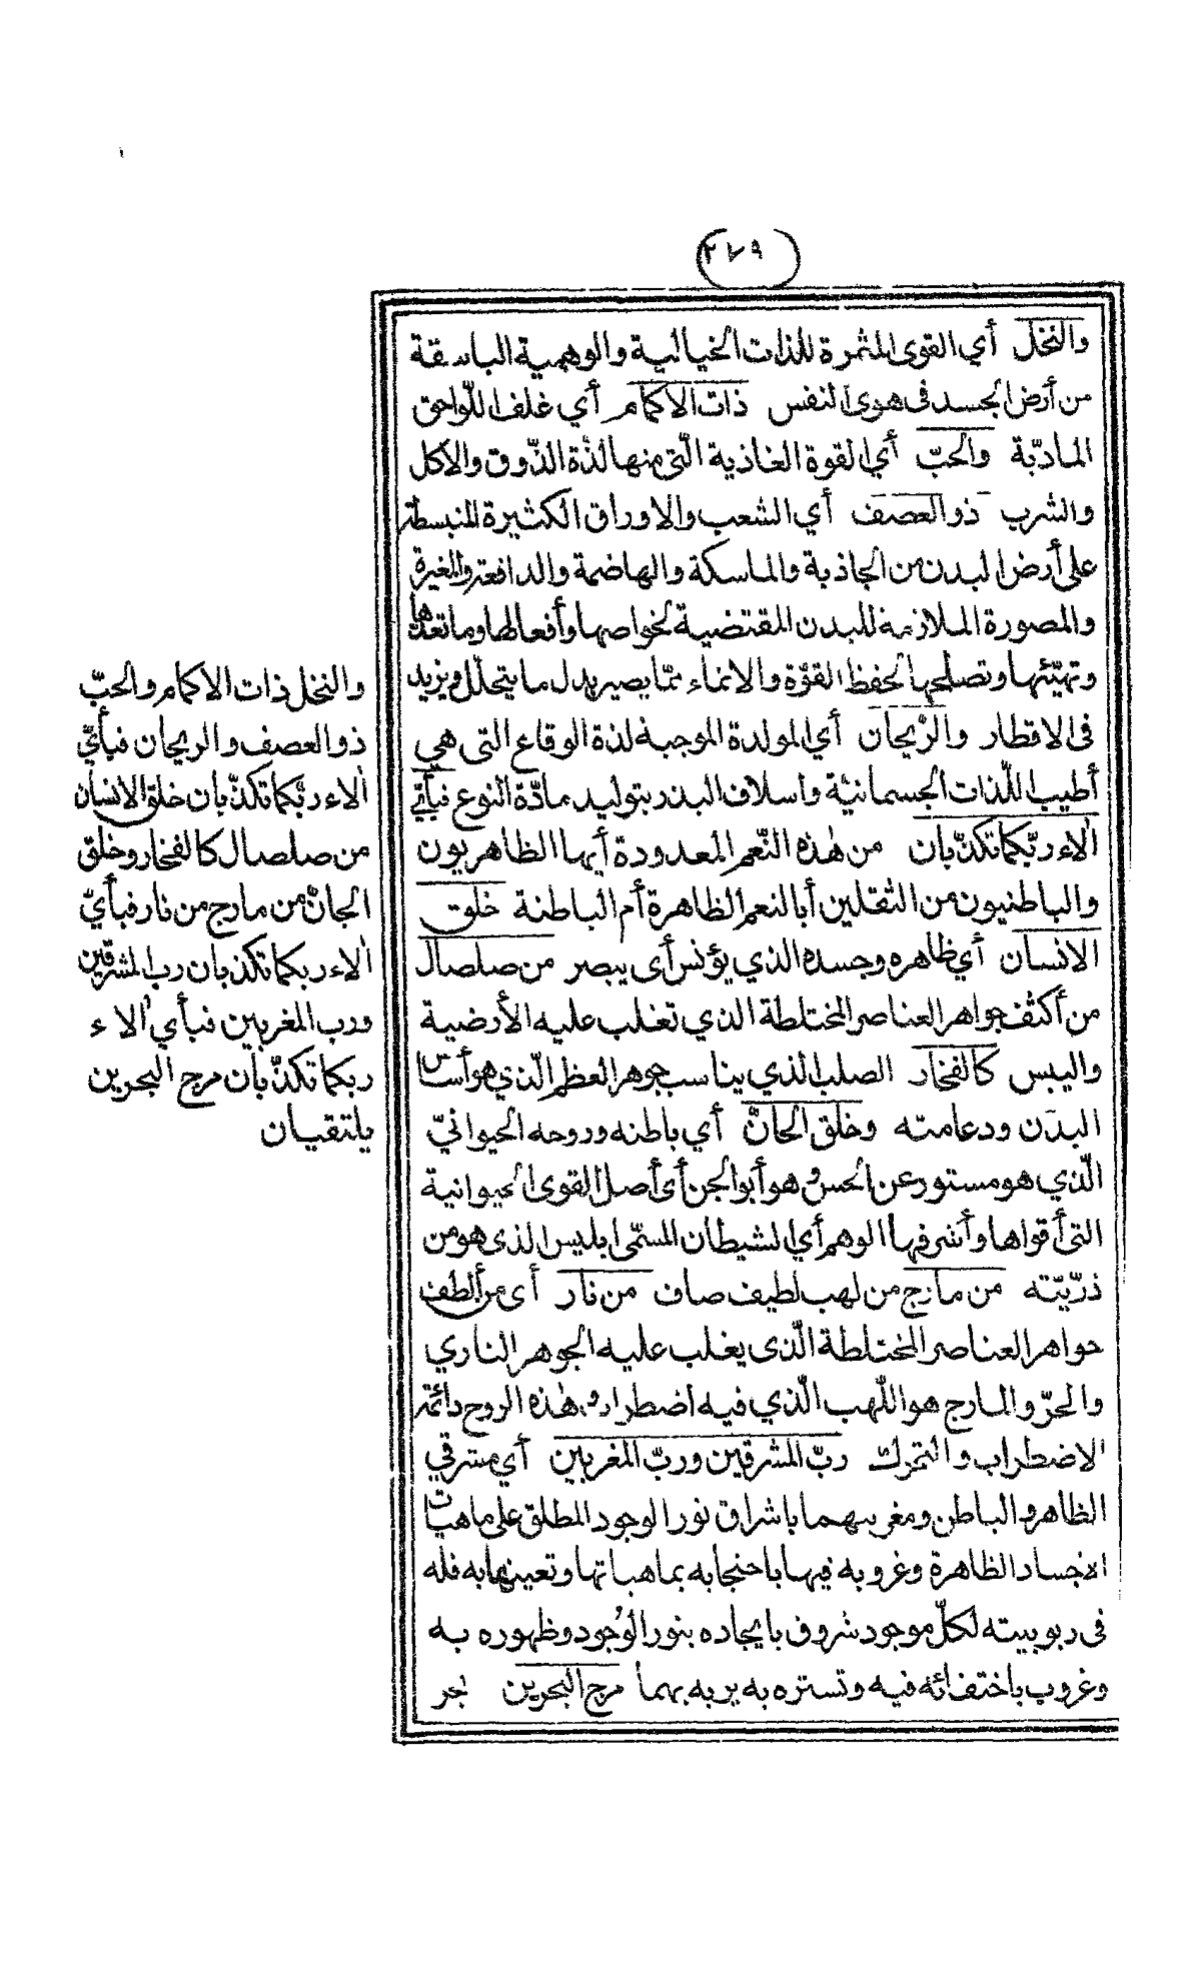 (٢٧٩)
والنخل أي القوى المثمرة للذات الخيالية والوهمية الباسقة
من أرض الجسد في هوى النفس ذات الاكمام أي غلف اللّواحق
المادّية والحبّ أي القوة الغاذية الّتي منها لذّة الذّوق والأكل
والشرب ذو العصف أي الشعب والاوراق الكثيرة المنبسطة
على أرض البدن من الجاذبة والماسكة والهاضمة والدافعة والمغيرة
والمصورة الملازمة للبدن المقتضية لخواصها وأفعالها وما تعدّها
وتهيّئها وتصلحها لحفظ القوّة والانماء ممّا يصير بدل ما يتحلّل ويزيد
في الاقطار والرّيحان أي المولدة الموجبة لذة الوقاع التي هي
أطيب اللّذات الجسمانيّة واسلاف البذر بتوليد مادّة النوع فبأيّ
آلاء ربّكما تكذّبان من هٰذه النّعم المعدودة أيها الظاهريون
والباطنيون من الثقلين أبالنعم الظاهرة أم الباطنة خلق
الانسان أي ظاهره وجسده الذي يؤنس أى يبصر من صلصال
من أكثف جواهر العناصر المختلطة الذي تغلب عليه الأرضية
واليبس كالفخار الصلب الذي يناسب جوهر العظم الّذي هو أساس
البدن ودعامته وخلق الجانّ أي باطنه وروحه الحيوانيّ
الّذي هو مستور عن الحس وهو أبو الجن أي أصل القوى الحيوانية
التي أقواها وأشرفها الوهم أي الشيطان المسمّى ابليس الذى هو من
ذرّيّته من مارج من لهب لطيف صاف من نار أى من ألطف
جواهر العناصر المختلطة الّذى يغلب عليه الجوهر الناري
والحرّ والمارج هو اللّهب الّذي فيه اضطراب وهٰذه الروح دائمة
الاضطراب والتحرك ربّ المشرقين وربّ المغربين أي مشرقي
الظاهر والباطن ومغربيهما باشراق نور الوجود المطلق على ماهيات
الاجساد الظاهرة وغروبه فيها باحتجابه بماهياتها وتعينها به فله
في ربوبيته لكلّ موجود شروق بايجاده بنور الوجود وظهوره به
وغروب باختفائه فيه وتستره به يربه بهما مرج البحرين بحر
والنخل ذات الاكمام والحبّ
ذو العصف والريحان فبأيّ
آلاء ربّكما تكذّبان خلق الانسان
من صلصال كالفخار وخلق
الجانّ من مارج من نار فبأيّ
آلاء ربكما تكذبان رب المشرقين
ورب المغربين فبأي آلاء
ربكما تكذّبان مرج البحرين
يلتقيان